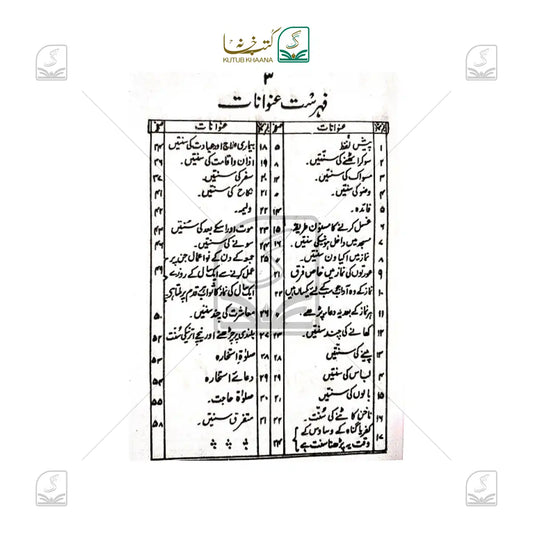 کتب خانہ
KUTUB KHAANA
۳
فہرست عنوانات
عنوانات
۱ پیش لفظ ۵
۲ سوکر اٹھنے کی سنتیں۔ ۸
۳ مسواک کی سنتیں۔
۴ وضو کی سنتیں۔
۵ فائدہ۔ ۱۴
۶ غسل کرنے کا مسنون طریقہ ۱۵
۷ مسجد میں داخل ہونیکی سنتیں۔ ۱۶
۸ نماز میں اکیاون سنتیں۔
۹ عورتوں کی نماز میں خاص فرق ۲۱
۱۰ نماز کے وہ آداب جو سب کے لیے یکساں ہیں ۲۲
۱۱ ہر نماز کے بعد یہ دعا پڑھے۔
۱۲ کھانے کی چند سنتیں۔
۱۳ پینے کی سنتیں ۲۸
۱۴ لباس کی سنتیں ۲۹
۱۵ بالوں کی سنتیں
۱۶ ناخن کاٹنے کی سنت۔ ۳۲
۱۷ کفر یا گناہ کے وساوس کے
وقت یہ پڑھنا سنت ہے
عنوانات
۱۸ بیماری علاج اور عیادت کی سنتیں ۳۴
۱۹ اذان و اقامت کی سنتیں۔ ۳۶
۲۰ سفر کی سنتیں ۳۷
۲۱ نکاح کی سنتیں۔ ۴۰
۲۲ ولیمہ۔ ۴۲
۲۳ موت اور اسکے بعد کی سنتیں
۲۴ سونے کی سنتیں۔ ۴۶
۲۵ جمعہ کے دن کے نو اعمال جن پر
عمل کرنے سے ایک سال کے روزے ۴۹
ایک سال کی نماز کا ثواب ہر قدم پر ملتا ہے
۲۶ معاشرت کی چند سنتیں۔ ۵۰
۲۷ بلندی پر چڑھنے اور نیچے اترنے کی سنت ۵۲
۲۸ صلوٰۃ استخارہ ۵۳
۲۹ دعائے استخارہ ۵۴
۳۰ صلوٰۃ حاجت۔ ۵۵
۳۱ متفرق سنتیں۔ ۵۸